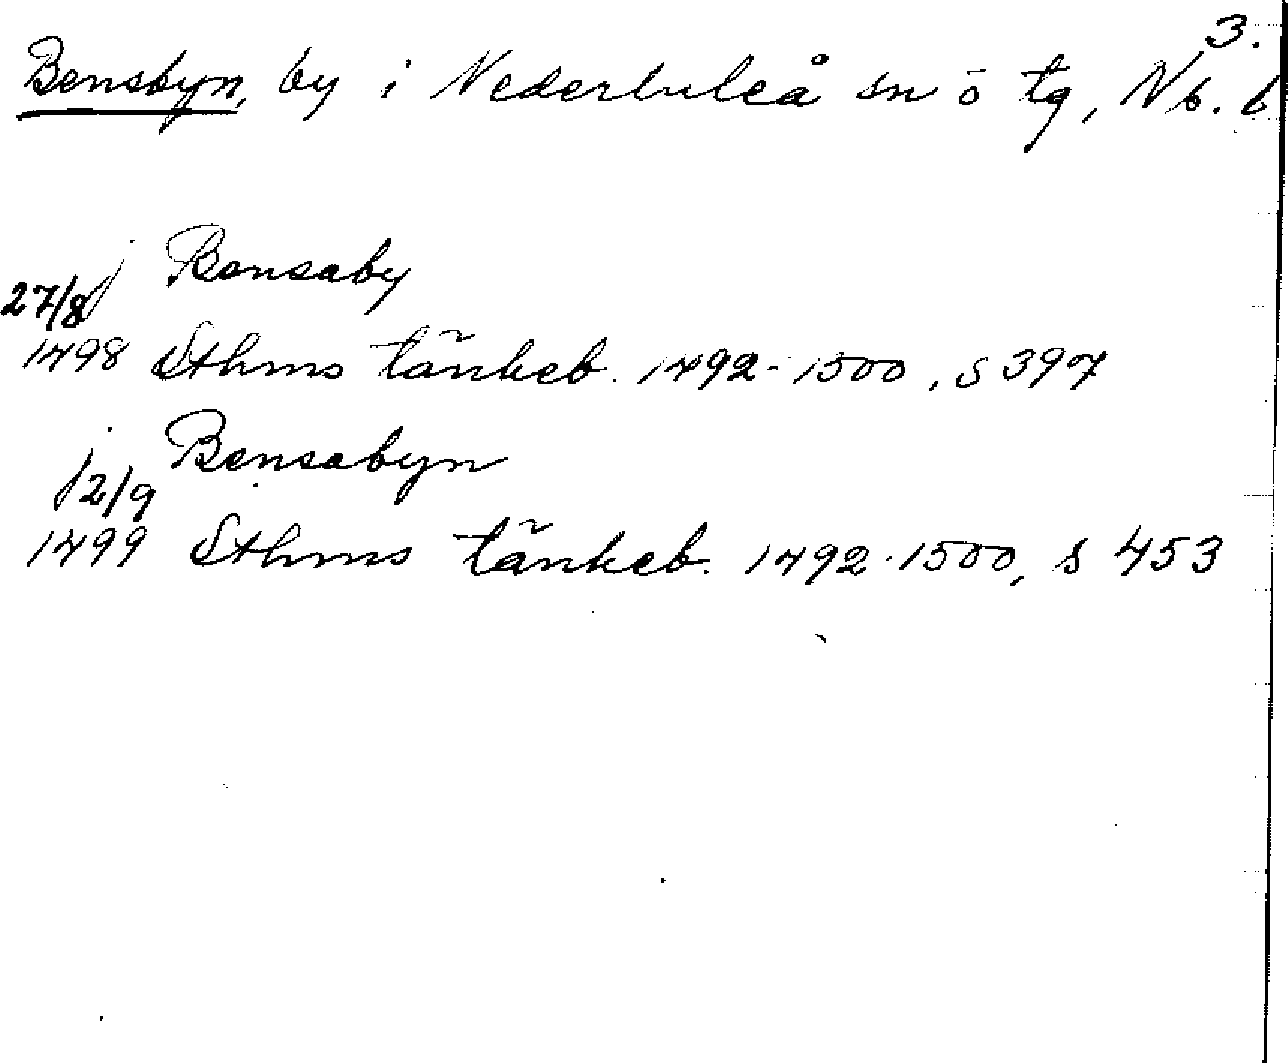 3.
Bensbyn, by i Nederluleå sn o tg, Nb. l
j Bensaby
27/8
1498 Sthms tänkeb. 1492-1500, s 397
j Bensabyn
12/9
1499 Sthms tänkeb. 1492-1500, s 453